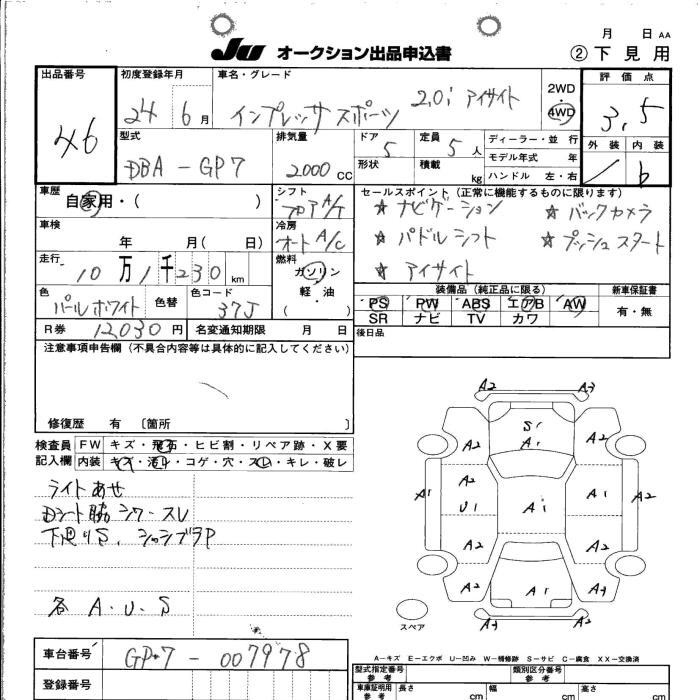 月 日 AA
JU オークション出品申込書 ②下見用
出品番号 46
初度登録年月 24 6月
車名・グレード インプレッサスポーツ 2,0i アイサイト
2WD・4WD
評価点 3,5
外装 内装 6
型式 DBA-GP7
排気量 2000CC
ドア 5 定員 5人
形状 積載 kg
ディーラー・並行
モデル年式 年
ハンドル 左・右
車歴 自家用・( )
シフト フロアA/T
セールスポイント (正常に機能するものに限ります)
★ナビゲーション ★バックカメラ
★パドルシフト ★プッシュスタート
★アイサイト
車検 年 月( 日)
冷房 オートA/C
走行 10万1千230km
燃料 ガソリン 軽・油 ( )
色 パールホワイト 色替 色コード 37J
装備品(純正品に限る) 新車保証書
PS PW ABS エアB AW 有・無
SR ナビ TV カワ
R券 12030円 名変通知期限 月 日
後日品
注意事項申告欄(不具合内容等は具体的に記入してください)
修復歴 有 〔箇所 〕
検査員記入欄 FW キズ・飛石・ヒビ割・リペア跡・X要
内装 キズ・汚れ・コゲ・穴・スレ・キレ・破レ
ライトあせ
Dシート脇シワ・スレ
下廻りS、
各 A・U・S
A2 A3
A2 S1 A1 A2
A1 A2 U1 A1 A1 A2
A2 A2
A2 A1 A3
A2 A2
スペア
A-キズ E-エクボ U-凹み W-補修跡 S-サビ C-腐食 XX-交換済
車台番号 GP7-007978
登録番号
型式指定番号 参考 類別区分番号 参考
車庫証明用 参考 長さ cm 幅 cm 高さ cm